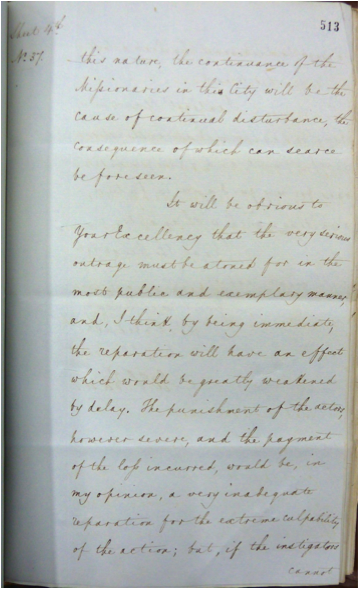 513
Sheet 4th
No. 37.
this nature, the continuance of the
Missionaries in this City will be the
cause of continual disturbance, the
consequence of which can scarce
be foreseen.
It will be obvious to
Your Excellency that the very serious
outrage must be atoned for in the
most public and exemplary manner,
and, I think, by being immediate,
the reparation will have an effect
which would be greatly weakened
by delay. The punishment of the actors,
however severe, and the payment
of the loss incurred, would be, in
my opinion, a very inadequate
reparation for the extreme culpability
of the action; but, if the instigators
cannot